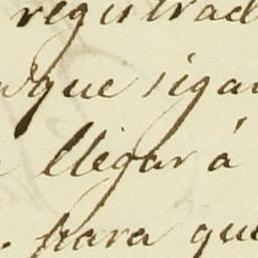 registrad
que siga
llegar á
para que